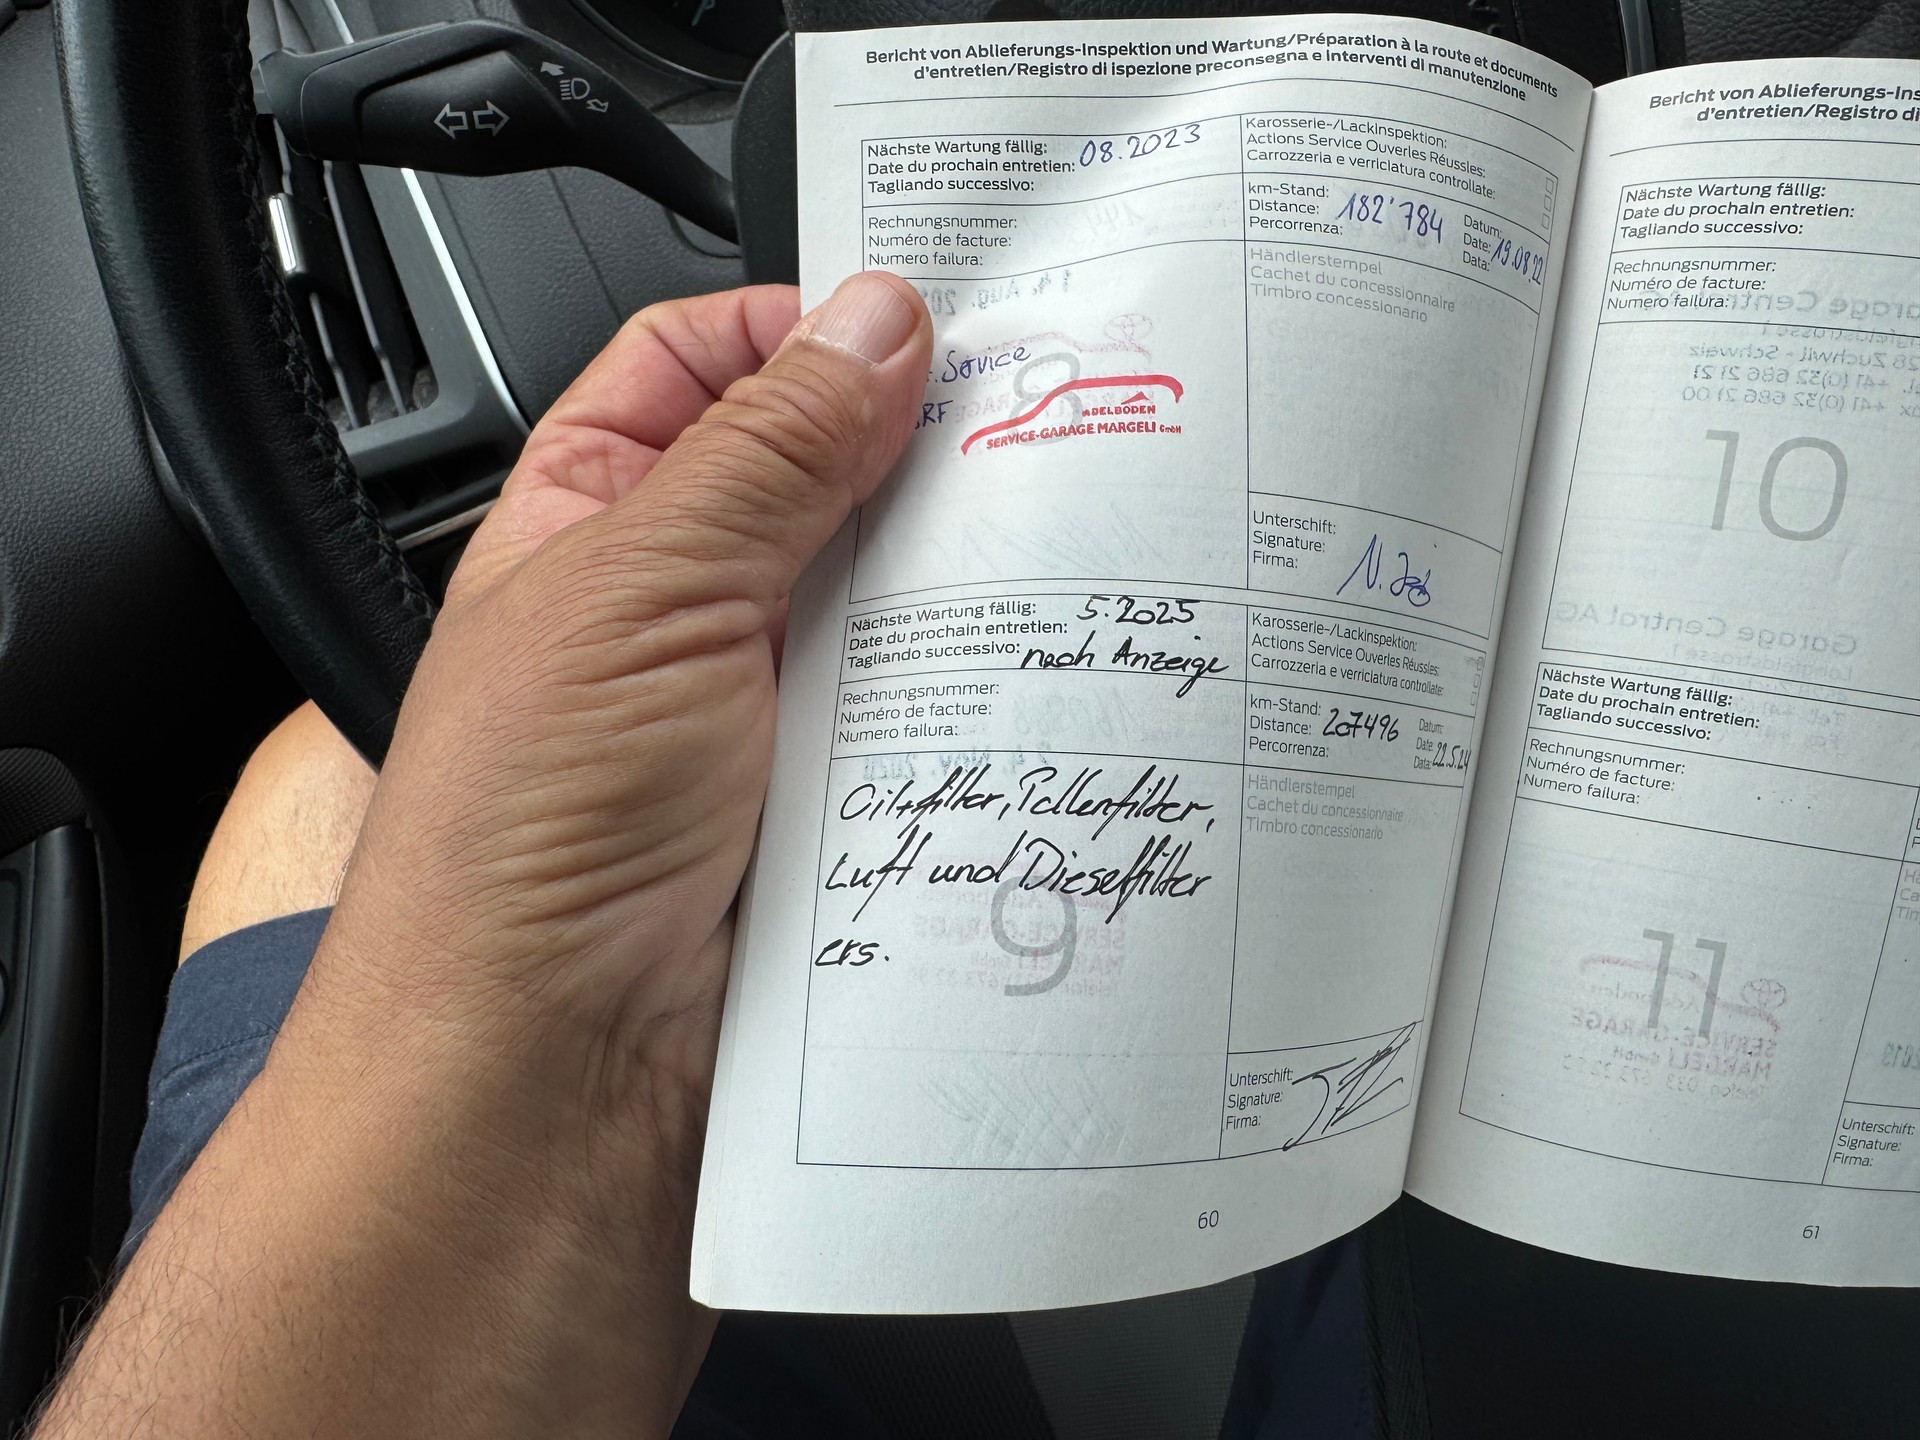 Bericht von Ablieferungs-Inspektion und Wartung/Préparation à la route et documents
d'entretien/Registro di ispezione preconsegna e interventi di manutenzione
Nächste Wartung fällig:
Date du prochain entretien: 08.2023
Tagliando successivo:
Karosserie-/Lackinspektion:
Actions Service Ouverles Réussles:
Carrozzeria e verriciatura controllate:
Rechnungsnummer:
Numéro de facture:
Numero failura:
km-Stand:
Distance: 182'784
Percorrenza:
Datum:
Date: 19.08.22
Data:
Service
RF
8
ADELBODEN
SERVICE-GARAGE MARGELI GmbH
Händlerstempel
Cachet du concessionnaire
Timbro concessionario
Unterschift:
Signature:
Firma:
Nächste Wartung fällig: 5.2025
Date du prochain entretien:
Tagliando successivo: nach Anzeige
Karosserie-/Lackinspektion:
Actions Service Ouverles Réussles:
Carrozzeria e verriciatura controllate:
Rechnungsnummer:
Numéro de facture:
Numero failura:
km-Stand:
Distance: 207496
Percorrenza:
Datum:
Date: 22.5.24
Data:
Oil+filter, Pollenfilter,
Luft und Dieselfilter
ers.
9
Händlerstempel
Cachet du concessionnaire
Timbro concessionario
Unterschift:
Signature:
Firma:
60
Bericht von Ablieferungs-Ins
d'entretien/Registro di
Nächste Wartung fällig:
Date du prochain entretien:
Tagliando successivo:
Rechnungsnummer:
Numéro de facture:
Numero failura:
10
Nächste Wartung fällig:
Date du prochain entretien:
Tagliando successivo:
Rechnungsnummer:
Numéro de facture:
Numero failura:
11
Unterschift:
Signature:
Firma:
61